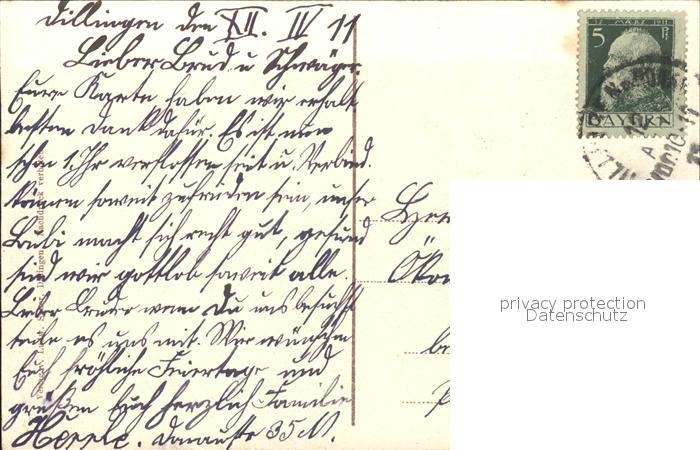 Dillingen den XII. IV 11
Lieber Brud u Schwäger.
Eure Karte haben wir erhalt
besten Dank dafür. Es ist nun
schon 1 Jhr verflossen seit u. Verbind.
können soweit zufrieden sein, unser
Bubi macht sich recht gut, gesund
sind wir gottlob soweit alle.
Lieber Bruder wenn Du uns besuchst
teile es uns mit. Wir wünschen
Euch fröhliche Feiertage und
grüßen Euch herzlich Familie
Donaustr 35 M.
5 Pf
BAYERN
Her
Ökon
be
privacy protection
Datenschutz